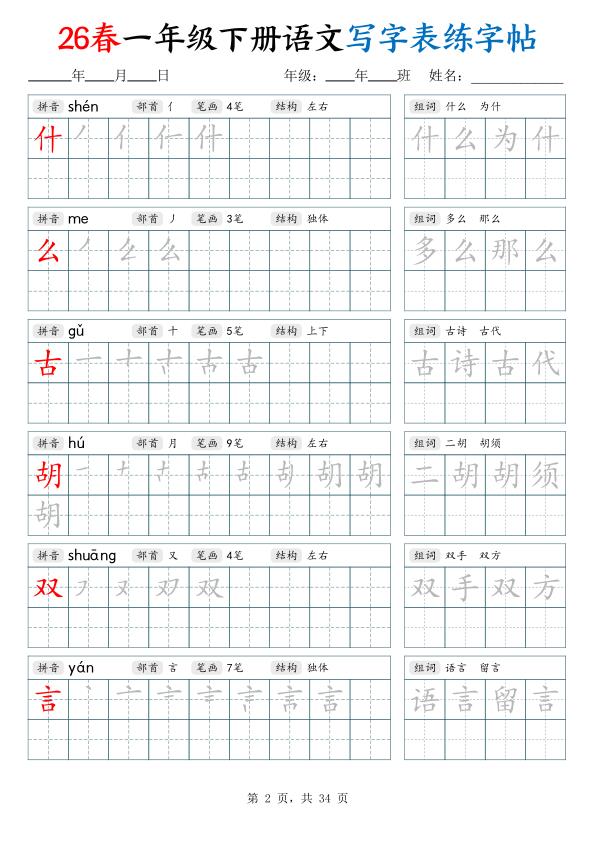 26春一年级下册语文写字表练字帖
______年____月____日 年级：____年____班 姓名：____________
拼音 shén 部首 亻 笔画 4笔 结构 左右 组词 什么 为什
什 丿 亻 什 什 么 为 什
拼音 me 部首 丿 笔画 3笔 结构 独体 组词 多么 那么
么 丿 么 多 么 那 么
拼音 gǔ 部首 十 笔画 5笔 结构 上下 组词 古诗 古代
古 一 十 古 古 诗 古 代
拼音 hú 部首 月 笔画 9笔 结构 左右 组词 二胡 胡须
胡 一 十 古 胡 胡 二 胡 胡 须
胡
拼音 shuāng 部首 又 笔画 4笔 结构 左右 组词 双手 双方
双 フ 又 双 双 手 双 方
拼音 yán 部首 言 笔画 7笔 结构 独体 组词 语言 留言
言 丶 亠 言 语 言 留 言
第 2 页，共 34 页